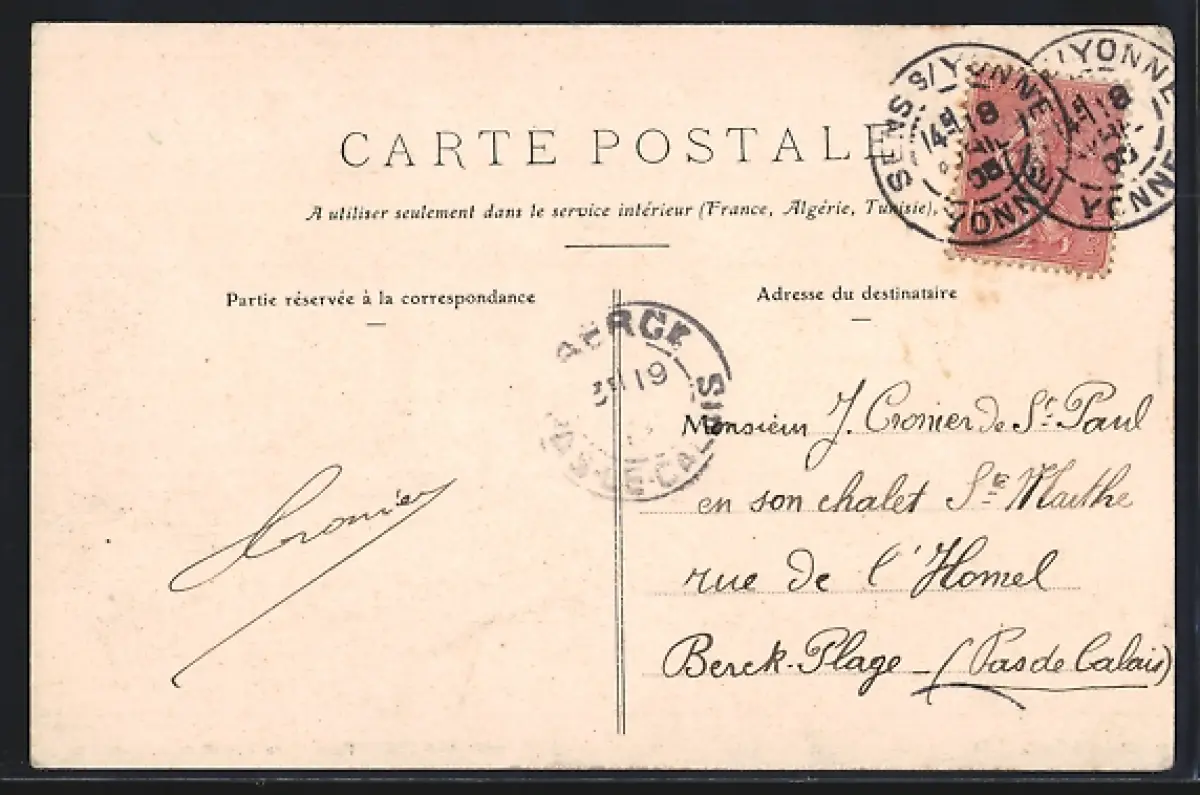 SENS S/YONNE
YONNE
14 18
05
S/YONNE
14 18
05
YONNE
CARTE POSTALE
A utiliser seulement dans le service intérieur (France, Algérie, Tunisie).
Partie réservée à la correspondance
Adresse du destinataire
BERCK
19
PAS-DE-CALAIS
Monsieur J. Cronier de St. Paul
en son chalet Ste Marthe
rue de l'Homel
Berck-Plage - (Pas de Calais)
Cronier